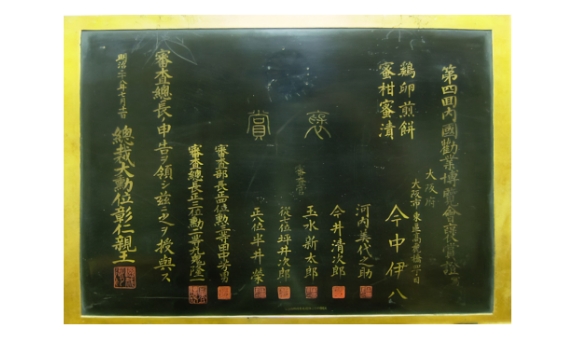 第四回内國勸業博覽會褒賞證
大阪府
大阪市東區高麗橋
今中伊八
鷄卵煎餅
蜜柑蜜漬
褒賞
審査官
河内美代之助
今井清次郎
玉水新太郎
從七位坪井次郎
正八位半井榮
審査部長
審査總長正三位勲一等九鬼隆一
審査總長ノ申告ヲ領シ茲ニ之ヲ授與ス
明治廿八年七月十一日
總裁大勲位彰仁親王